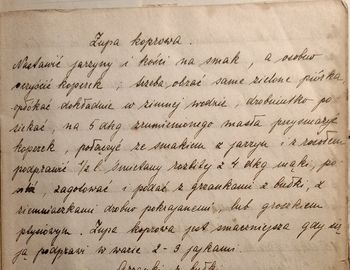 Zupa koprowa.
Nastawić jarzyny i kości na smak, a osobno
oczyścić koperek, trzeba obrać same zielone piórka,
opłókać dokładnie w zimnej wodzie, drobniutko po-
siekać, na 5 dkg zrumienionego masła przysmażyć
koperek, połączyć ze smakiem z jarzyn i z rosołem
podprawić 1/2 l śmietany rozbitej z 4 dkg mąki, po
zagotować i podać z grzankami z bułki, z
ziemniaczkami drobno pokrajanemi, lub groszkiem
ptysiowym. Zupa koprowa jest smaczniejsza gdy się
ją podprawi w wazie 2-3 jajkami.
Grzanki z bułki